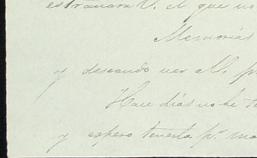 estrañará V. el que no
Memorias
y deseando ver All. p
Hace días no he t
y espero tenerla pª ma